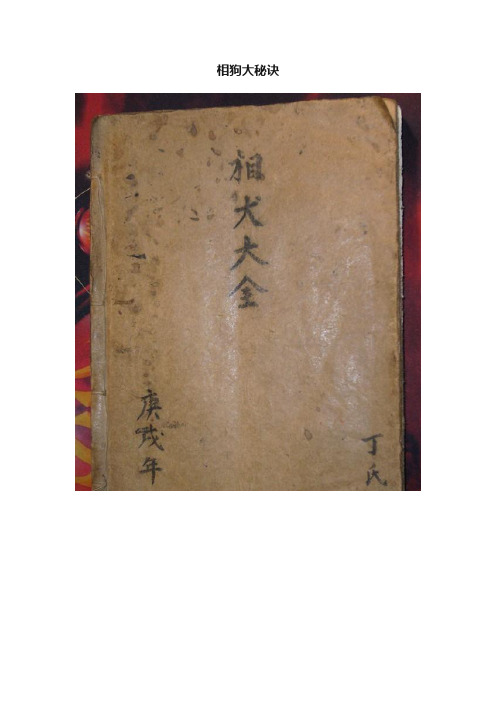 相狗大秘诀
相犬大全
庚戌年
丁氏